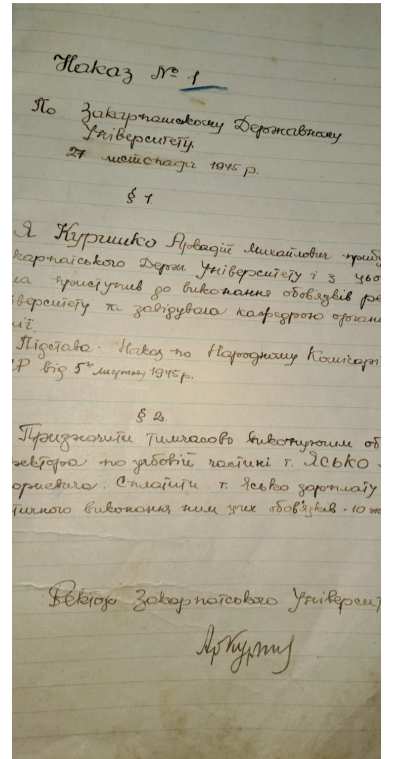 Наказ № 1
По Закарпатському Державному
Університету.
27 листопада 1945 р.
§ 1
Я Куришко Аркадій Михайлович прибу
карпатського Держ. Університету і з цьо
на приступив до виконання обов'язків ре
іверситету та завідувача кафедрою органі
мії.
Підстава. Наказ по Народному Комісарі
СР від 5го листопаду 1945 р.
§ 2.
Призначити тимчасово виконуючим об
ректора по учбовій частині т. Ясько
ориєвича. Сплатити т. Ясько зарплату
тичного виконання ним цих обов'язків - 10
Ректор Закарпатського Університ